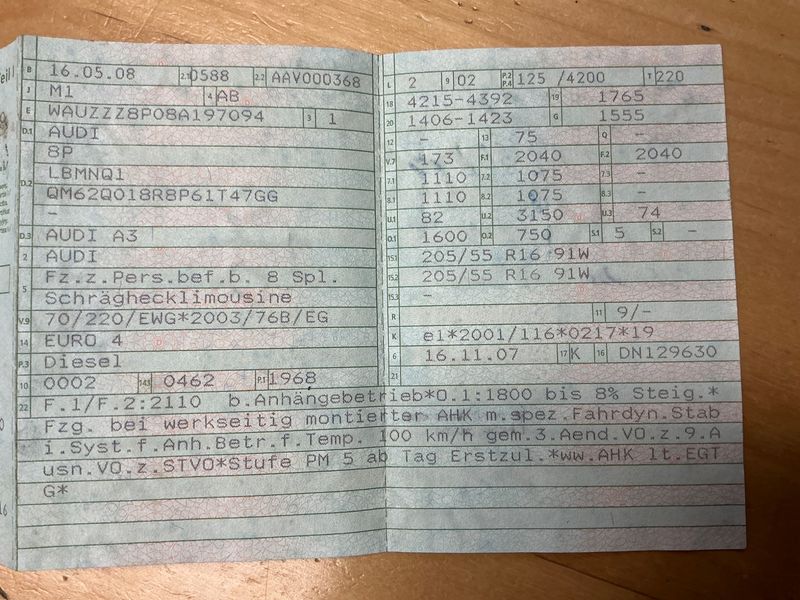 B 16.05.08 2.1 0588 2.2 AAV000368
J M1 4 AB
E WAUZZZ8P08A197094 3 1
D.1 AUDI
8P
D.2 LBMNQ1
QM62Q018R8P61T47GG
–
D.3 AUDI A3
2 AUDI
5 Fz.z.Pers.bef.b. 8 Spl.
Schräghecklimousine
V.9 70/220/EWG*2003/76B/EG
14 EURO 4
P.3 Diesel
10 0002 14.1 0462 P.1 1968
L 2 9 02 P.2 P.4 125 /4200 T 220
18 4215-4392 19 1765
20 1406-1423 G 1555
12 – 13 75 Q –
V.7 173 F.1 2040 F.2 2040
7.1 1110 7.2 1075 7.3 –
8.1 1110 8.2 1075 8.3 –
U.1 82 U.2 3150 U.3 74
O.1 1600 O.2 750 S.1 5 S.2 –
15.1 205/55 R16 91W
15.2 205/55 R16 91W
15.3 –
R 11 9/-
K e1*2001/116*0217*19
6 16.11.07 17 K 16 DN129630
21
22 F.1/F.2:2110 b.Anhängebetrieb*O.1:1800 bis 8% Steig.*
Fzg. bei werkseitig montierter AHK m.spez.Fahrdyn.Stab
i.Syst.f.Anh.Betr.f.Temp. 100 km/h gem.3.Aend.VO.z.9.A
usn.VO.z.STVO*Stufe PM 5 ab Tag Erstzul.*ww.AHK lt.EGT
G*